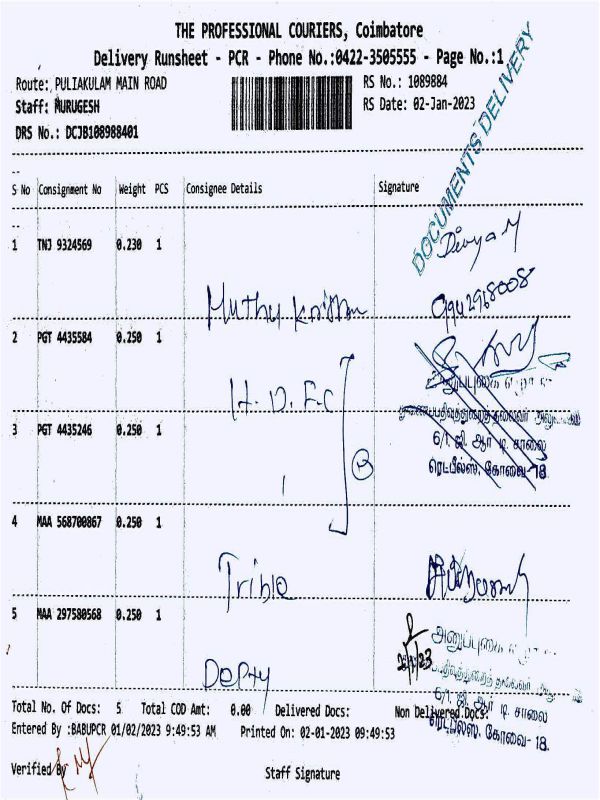 THE PROFESSIONAL COURIERS, Coimbatore
Delivery Runsheet - PCR - Phone No.:0422-3505555 - Page No.:1
Route: PULIAKULAM MAIN ROAD RS No.: 1089884
Staff: MURUGESH RS Date: 02-Jan-2023
DRS No.: DCJB108988401
DOCUMENTS DELIVERY
S No Consignment No Weight PCS Consignee Details Signature
1 TNJ 9324569 0.230 1
Divya M
Muthu 9942968008
2 PGT 4435584 0.250 1
H.D.F.C
3 PGT 4435246 0.250 1
6/1, ஜி. ஆர் டி. சாலை
ரெட்பீல்ஸ், கோவை-18.
4 MAA 568700867 0.250 1
5 MAA 297580568 0.250 1
அனுப்புகை
6/1, ஜி. ஆர் டி. சாலை
ரெட்பீல்ஸ், கோவை-18.
Total No. Of Docs: 5 Total COD Amt: 0.00 Delivered Docs: Non Delivered Docs:
Entered By :BABUPCR 01/02/2023 9:49:53 AM Printed On: 02-01-2023 09:49:53
Verified By Staff Signature